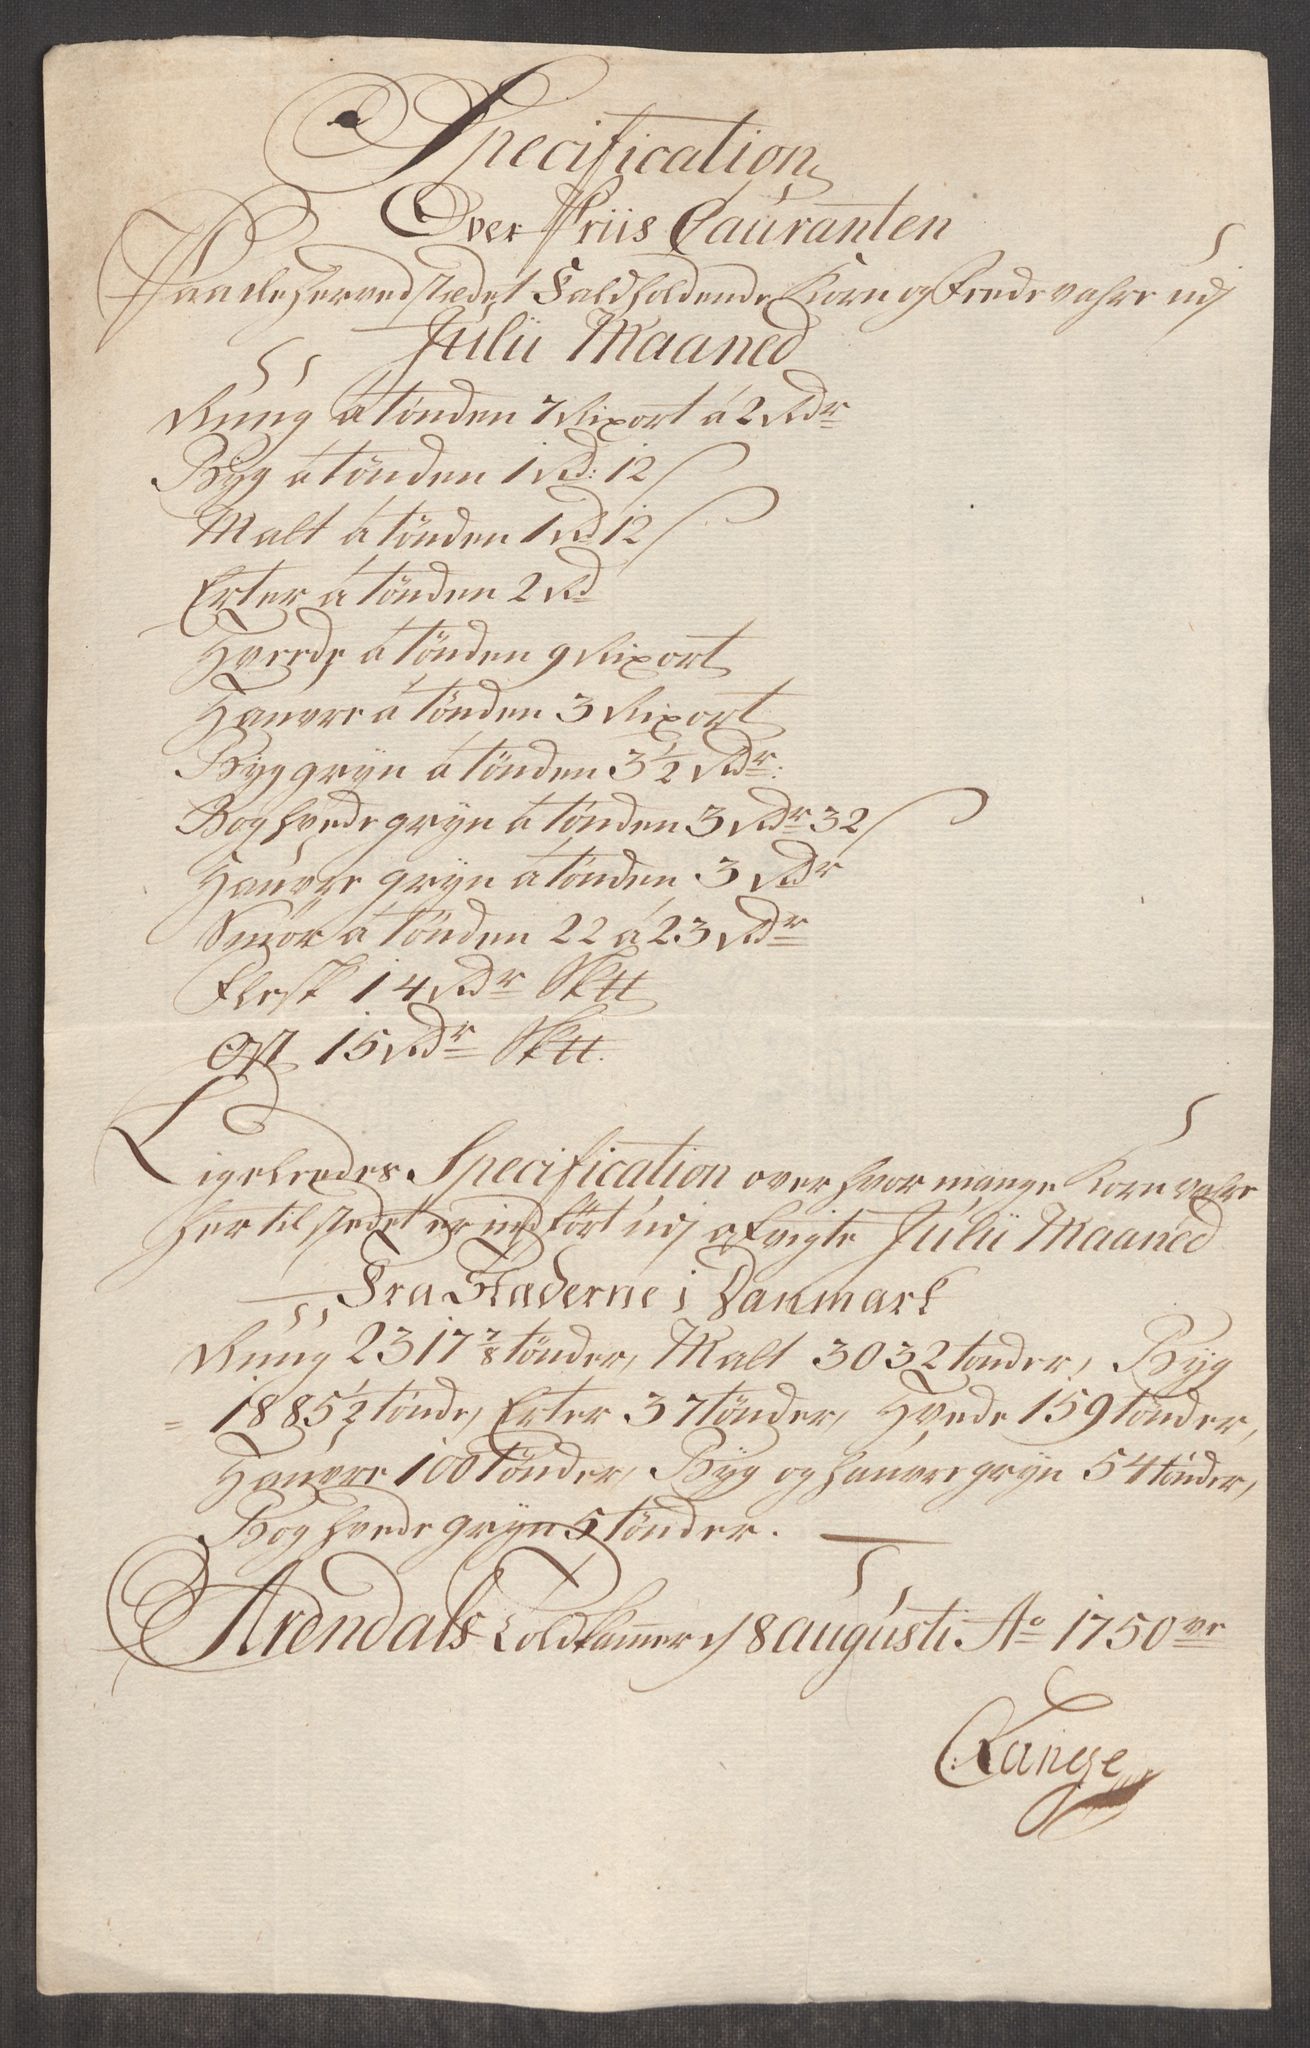 Specification
Over Priis Couranten
Paa de herved stædet Faldholdende Korn og Fede vahre udj
Julii Maaned
Rung á tönden 7 Rixort á 2 Rdr
Byg á tönden 1 Rd: 12 s
Malt á tönden 1 Rd 12 s
Erter á tönden 2 Rd
Hvede á tönden 9 Rixort
Haure á tönden 3 Rixort
Byg gryn á tönden 3½ Rdr:
Boghvede gryn á tönden 3 Rdr 32 s
Haure gryn á tönden 3 Rdr
Smör á tönden 22 á 23 Rdr
Flesk 14 Rdr Sktt
Ost 15 Rdr Sktt.
Ligeledes Specification over hvor mange Korn vahre
her til stedet er indfört udj afvigte Julii Maaned
Fra Stæderne i Danmark
Rung 2317 7/8 tönder, Malt 3032 tönder, Byg
= 1885½ tönde, Erter 37 tönder, Hvede 159 tönder,
Haure 100 tönder, Byg og haure gryn 54 tönder,
Boghvede gryn 5 tönder.
Arendals Toldkammer d 8 augusti Ao 1750
Lange